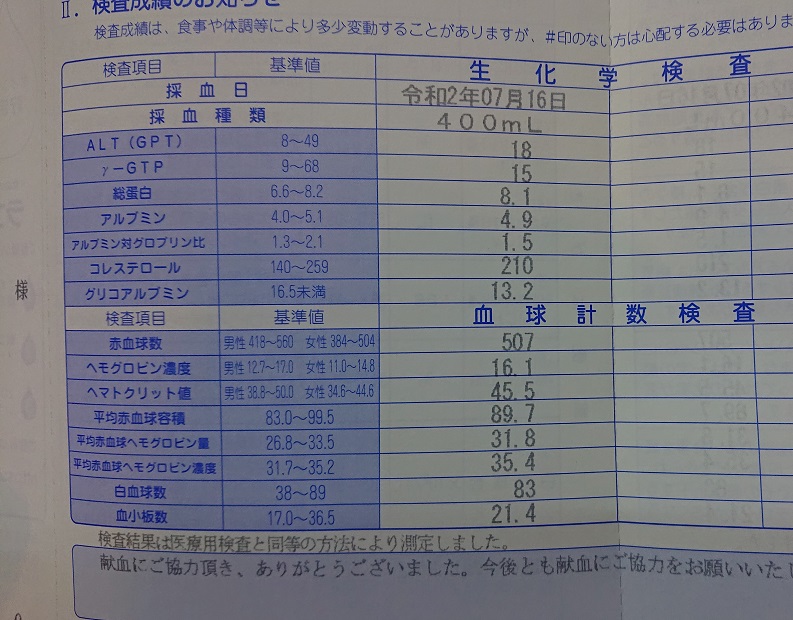 Ⅱ. 検査成績のお知らせ
検査成績は、食事や体調等により多少変動することがありますが、#印のない方は心配する必要はありま
検査項目 基準値 生化学検査
採血日 令和2年07月16日
採血種類 400mL
ALT(GPT) 8〜49 18
γ-GTP 9〜68 15
総蛋白 6.6〜8.2 8.1
アルブミン 4.0〜5.1 4.9
アルブミン対グロブリン比 1.3〜2.1 1.5
コレステロール 140〜259 210
グリコアルブミン 16.5未満 13.2
検査項目 基準値 血球計数検査
赤血球数 男性 418〜560 女性 384〜504 507
ヘモグロビン濃度 男性 12.7〜17.0 女性 11.0〜14.8 16.1
ヘマトクリット値 男性 38.8〜50.0 女性 34.6〜44.6 45.5
平均赤血球容積 83.0〜99.5 89.7
平均赤血球ヘモグロビン量 26.8〜33.5 31.8
平均赤血球ヘモグロビン濃度 31.7〜35.2 35.4
白血球数 38〜89 83
血小板数 17.0〜36.5 21.4
検査結果は医療用検査と同等の方法により測定しました。
献血にご協力頂き、ありがとうございました。今後とも献血にご協力をお願いいたし
様